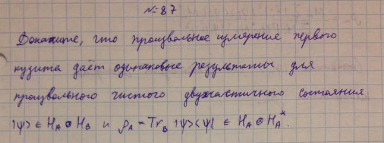 №87
Докажите, что произвольное измерение первого
кудита даёт одинаковые результаты для
произвольного чистого двухчастичного состояния
|ψ⟩ ∈ H_A ⊗ H_B и ρ_A = Tr_B |ψ⟩⟨ψ| ∈ H_A ⊗ H_A^*.